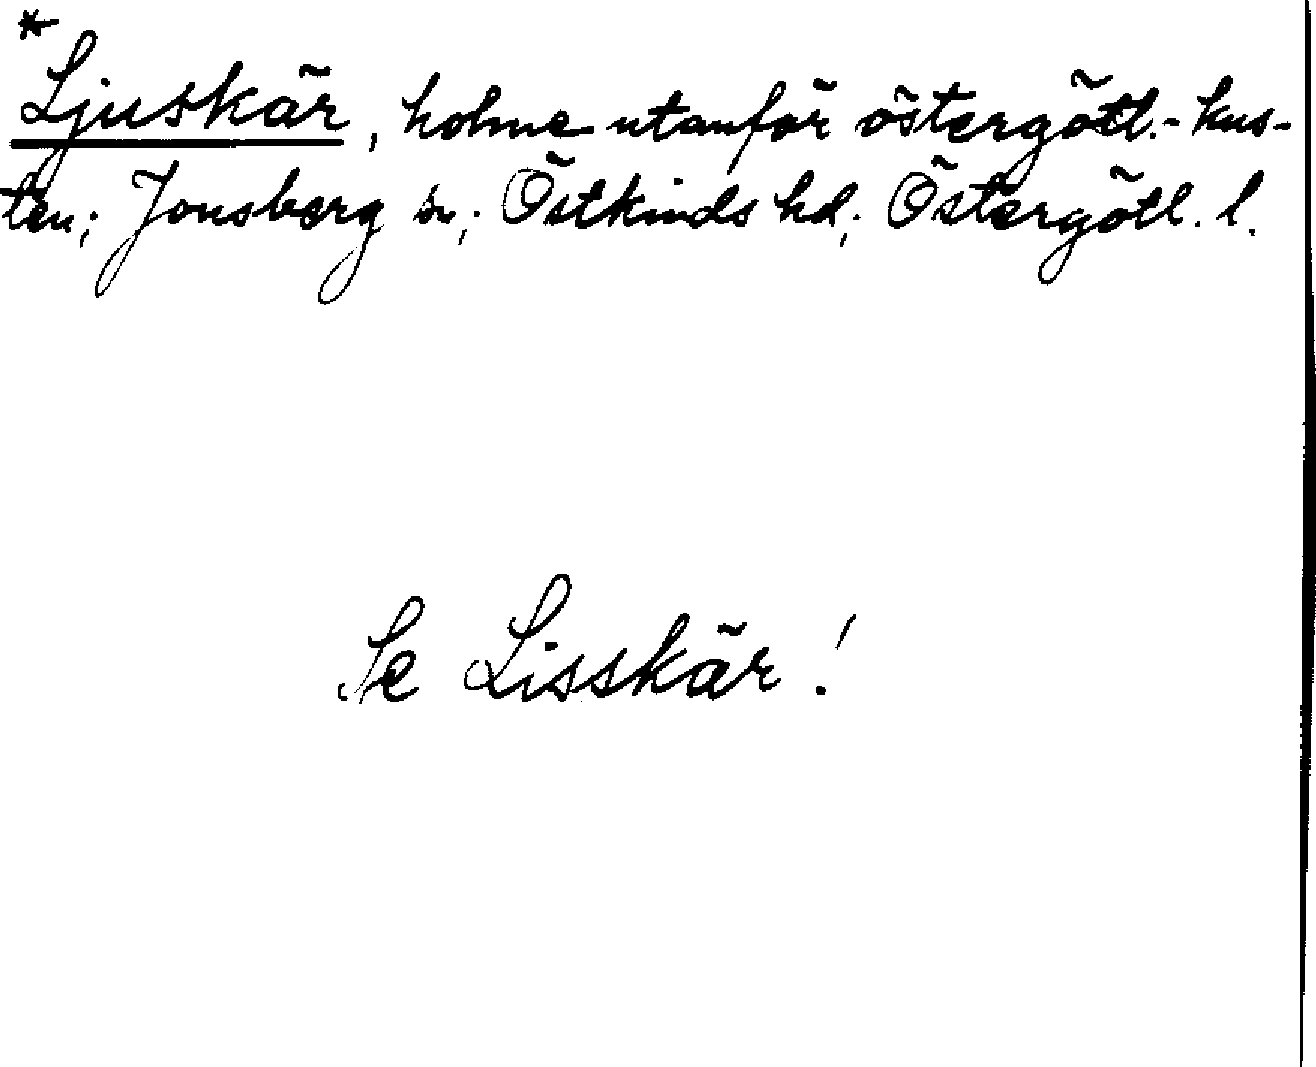 * Ljuskär, holme utanför östergötl.-kus-
ten; Jonsberg sn; Östkinds hd; Östergötl. l.
Se Lisskär!